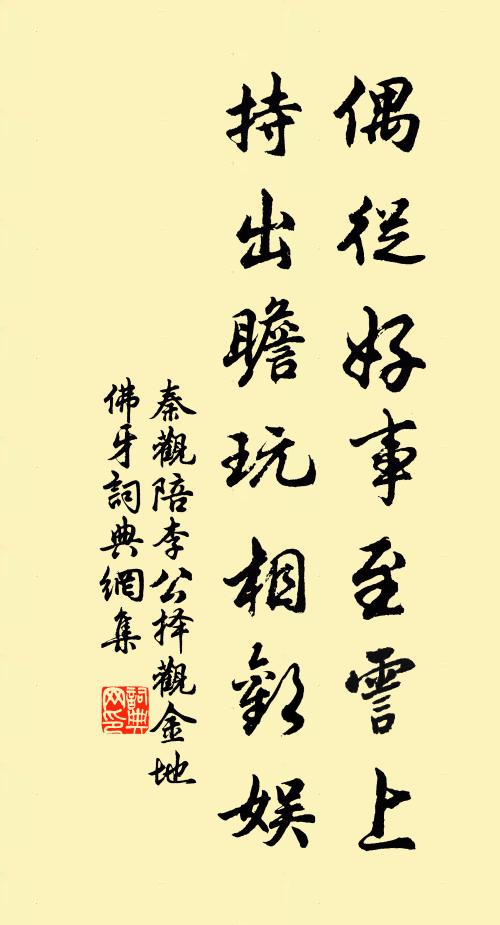 偶從好事至霅上
持出瞻玩相歡娛
秦觀陪李公择觀金地
佛牙詞典網集
詞典
网印